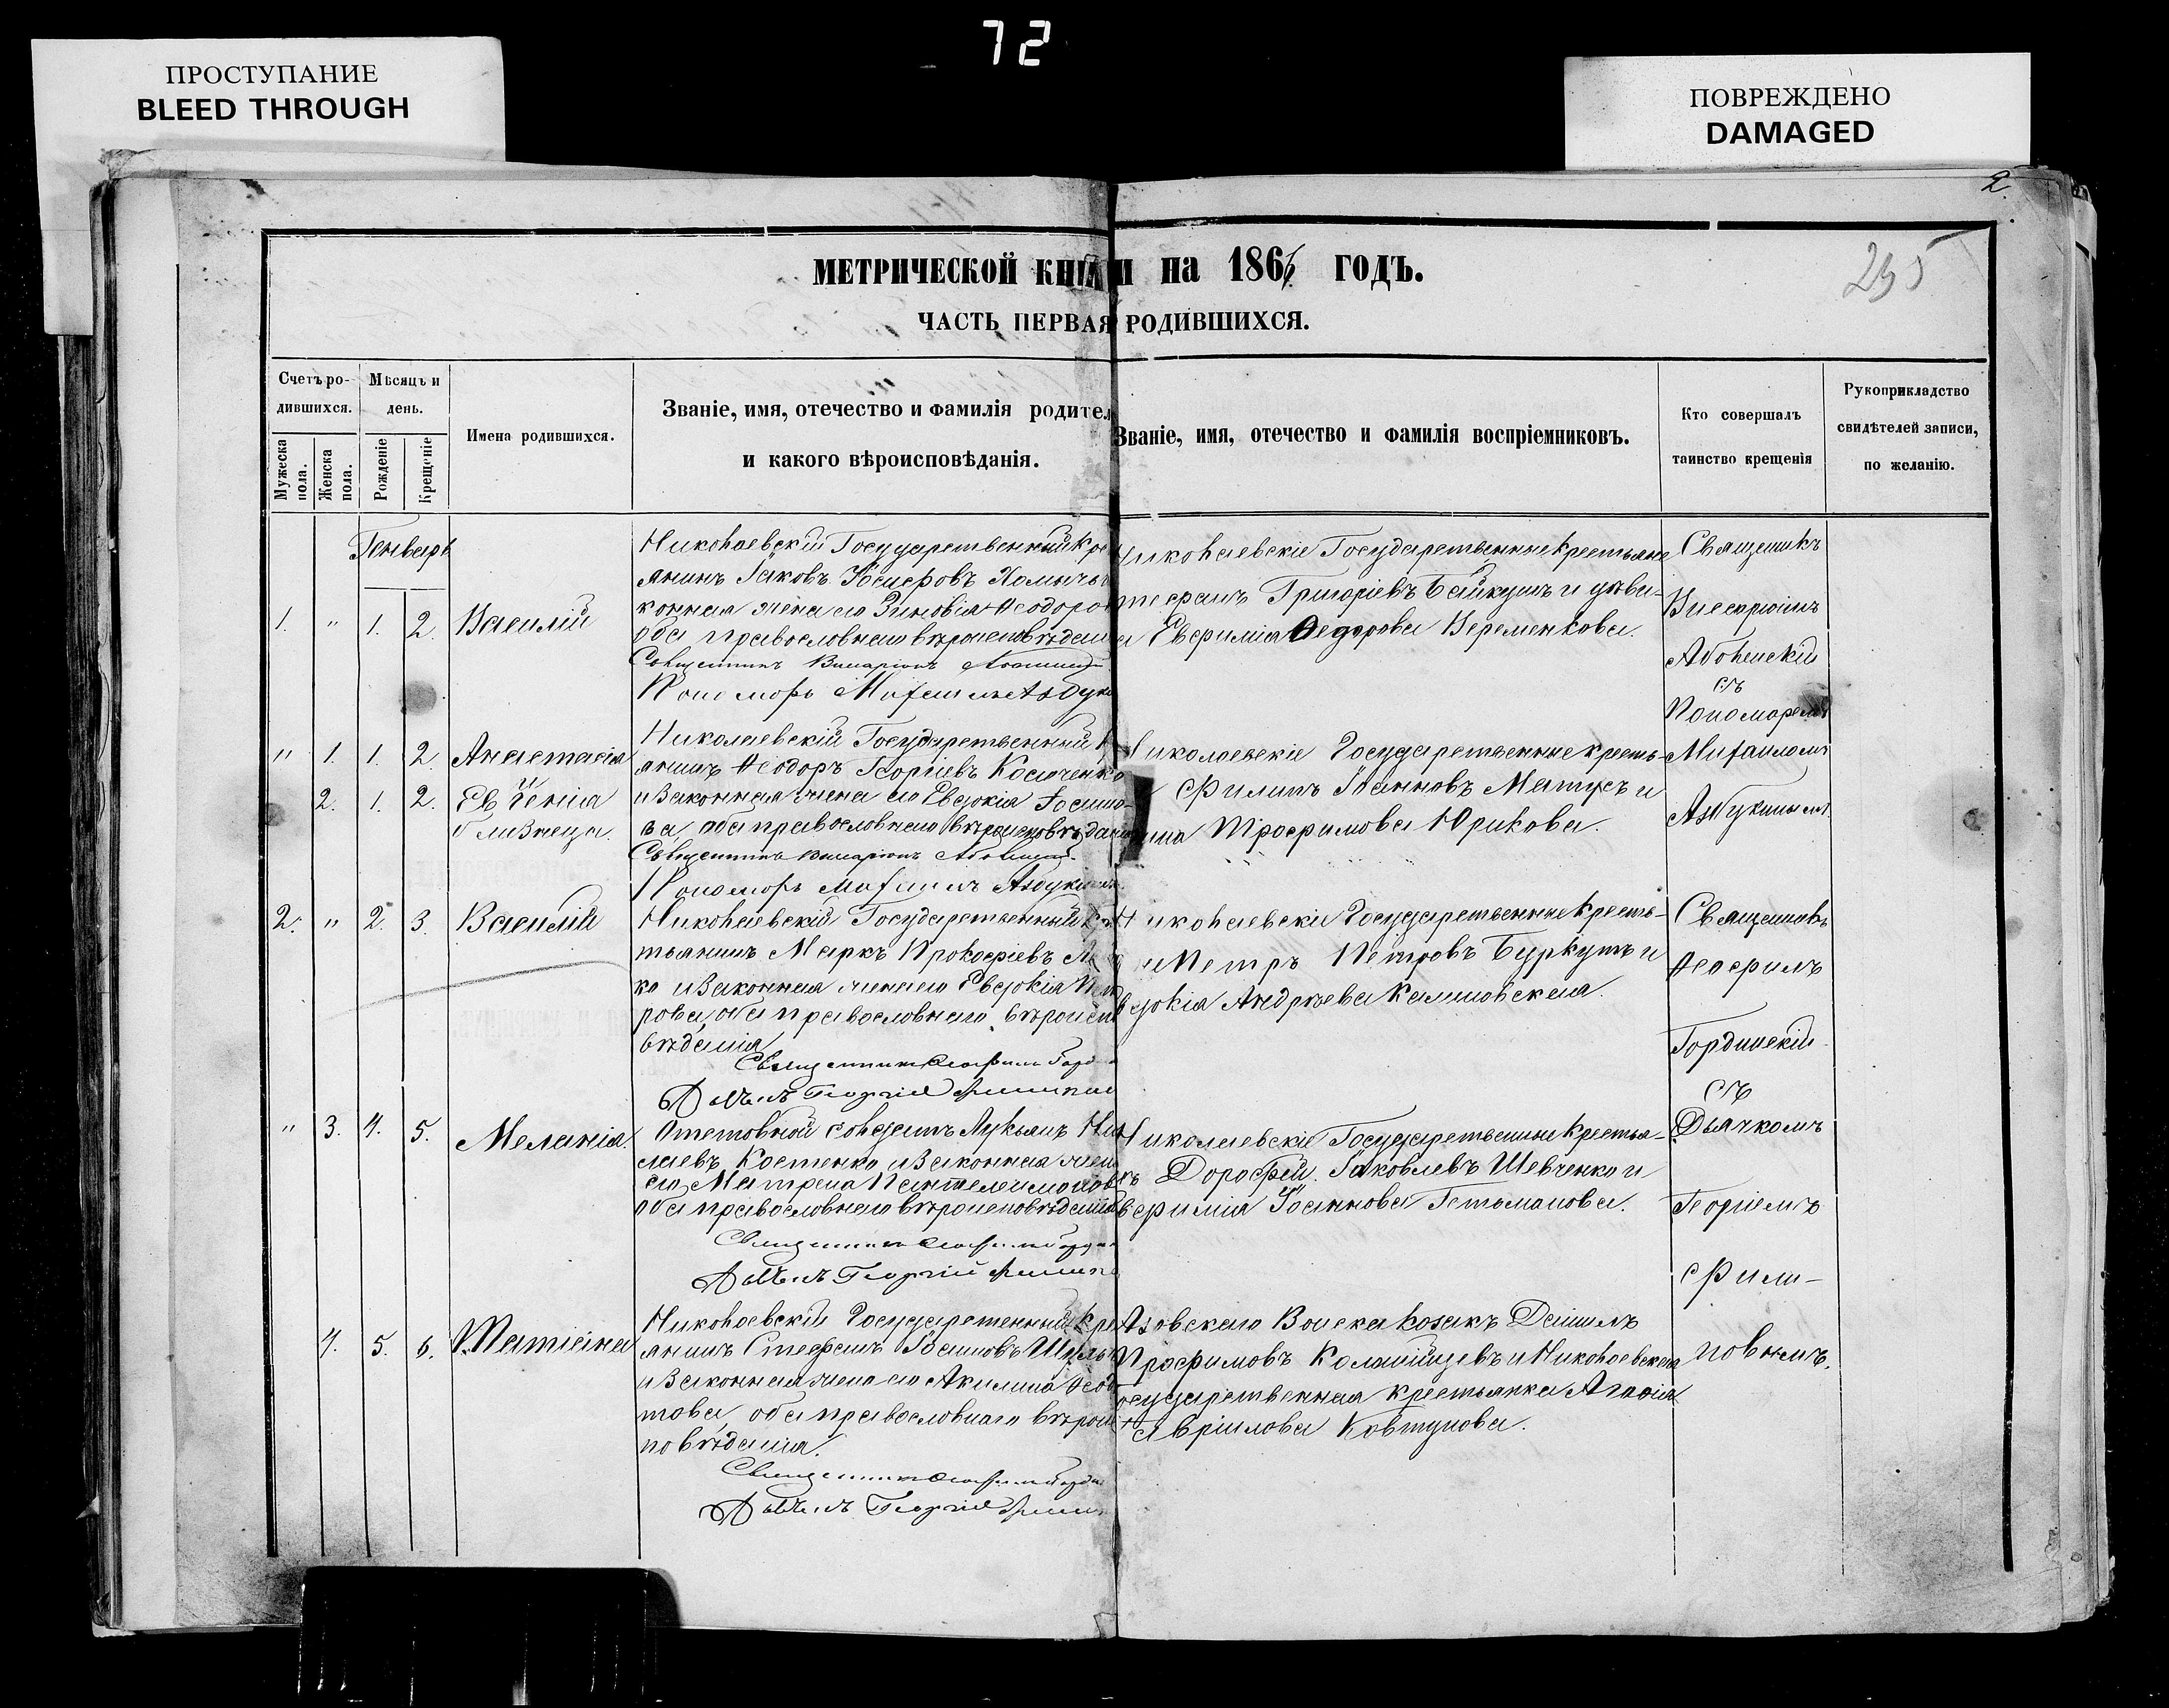 72
ПРОСТУПАНИЕ
BLEED THROUGH
ПОВРЕЖДЕНО
DAMAGED
2.
235
МЕТРИЧЕСКОЙ КНИГИ на 186 ГОДЪ.
ЧАСТЬ ПЕРВАЯ РОДИВШИХСЯ.
Счетъ ро-
дившихся.
Мужеска пола.
Женска пола.
Мѣсяцъ и
день.
Рожденіе
Крещеніе
Имена родившихся.
Званіе, имя, отечество и фамилія родител
и какого вѣроисповѣданія.
Званіе, имя, отечество и фамилія воспріемниковъ.
Кто совершалъ
таинство крещенія
Рукоприкладство
свидѣтелей записи,
по желанію.
Генварь
1. " 1. 2. Василій
Николаевскій Государственный Крес
янинъ Іаковъ
конная жена его Зиновія Ѳеодоро
оба православнаго вѣроисповѣдан
Священникъ
Пономарь Михаилъ Азбук
Николаевскіе Государственные Крестьяне
Григоріевъ Байкушъ и дѣви-
Евфимія Федорова Веременкова.
Священникъ
Аболенскій
съ
Пономаремъ
Михаиломъ
Азбукинымъ
" 1. 1. 2. Анастасія
2. 1. 2. Евгенія
близнеца.
Николаевскій Государственный К
янинъ Ѳеодоръ Георгіевъ Косюченко
и законная жена его Евдокія Іоанно-
ва, оба православнаго вѣроисповѣдані
Священникъ
Пономарь Михаилъ Азбукинъ
Николаевскіе Государственные кресть-
Филипъ Іоанновъ Матусъ и
Трофимова Юрикова.
2. " 2. 3. Василій
Николаевскій Государственный Крес
тьянинъ Маркъ Прокофіевъ
ко и законная жена его Евдокія Пет
рова, оба православнаго вѣроиспо
вѣданія
Священникъ Ѳеофилъ Горд
Дьячекъ Георгій Филипов
Николаевскіе Государственные Кресть-
Петръ Петровъ Буркутъ и
вдокія Андрѣева Калиновская.
Священникъ
Ѳеофилъ
Гординскій
съ
Дьячкомъ
Георгіемъ
Фили-
повымъ.
" 3. 4. 5. Меланія
Отставной солдатъ Лукьянъ Ник
лаевъ Костенко и законная жена
его Матрена Пантелеимонов
оба православнаго вѣроисповѣданія
Священникъ Ѳеофилъ Горди
Дьячекъ Георгій Филипо
Николаевскіе Государственные Крестья-
Дорофей Іаковлевъ Шевченко и
вфимія Іоаннова Гетоманова.
4. 5. 6. Татіана
Николаевскій Государственный Кре
янинъ Стефанъ Іоанновъ
и законная жена его Акилина
това, оба православнаго вѣроис
повѣданія.
Священникъ Ѳеофилъ Горди
Дьячекъ Георгій Филип
Азовскаго Войска Козакъ Даніилъ
Трофимовъ и Николаевская
осударственная крестьянка Агафія
Гавріилова Ковтунова.